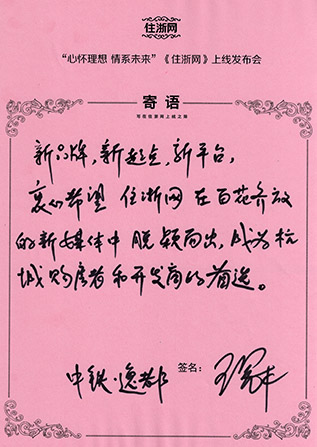 住浙网
“心怀理想 情系未来”《住浙网》上线发布会
寄语
写在住浙网上线之际
新品牌,新起点,新平台,
衷心希望 住浙网 在百花齐放
的新媒体中 脱颖而出,成为杭
城购房者和开发商的首选。
中铁·逸都
签名: